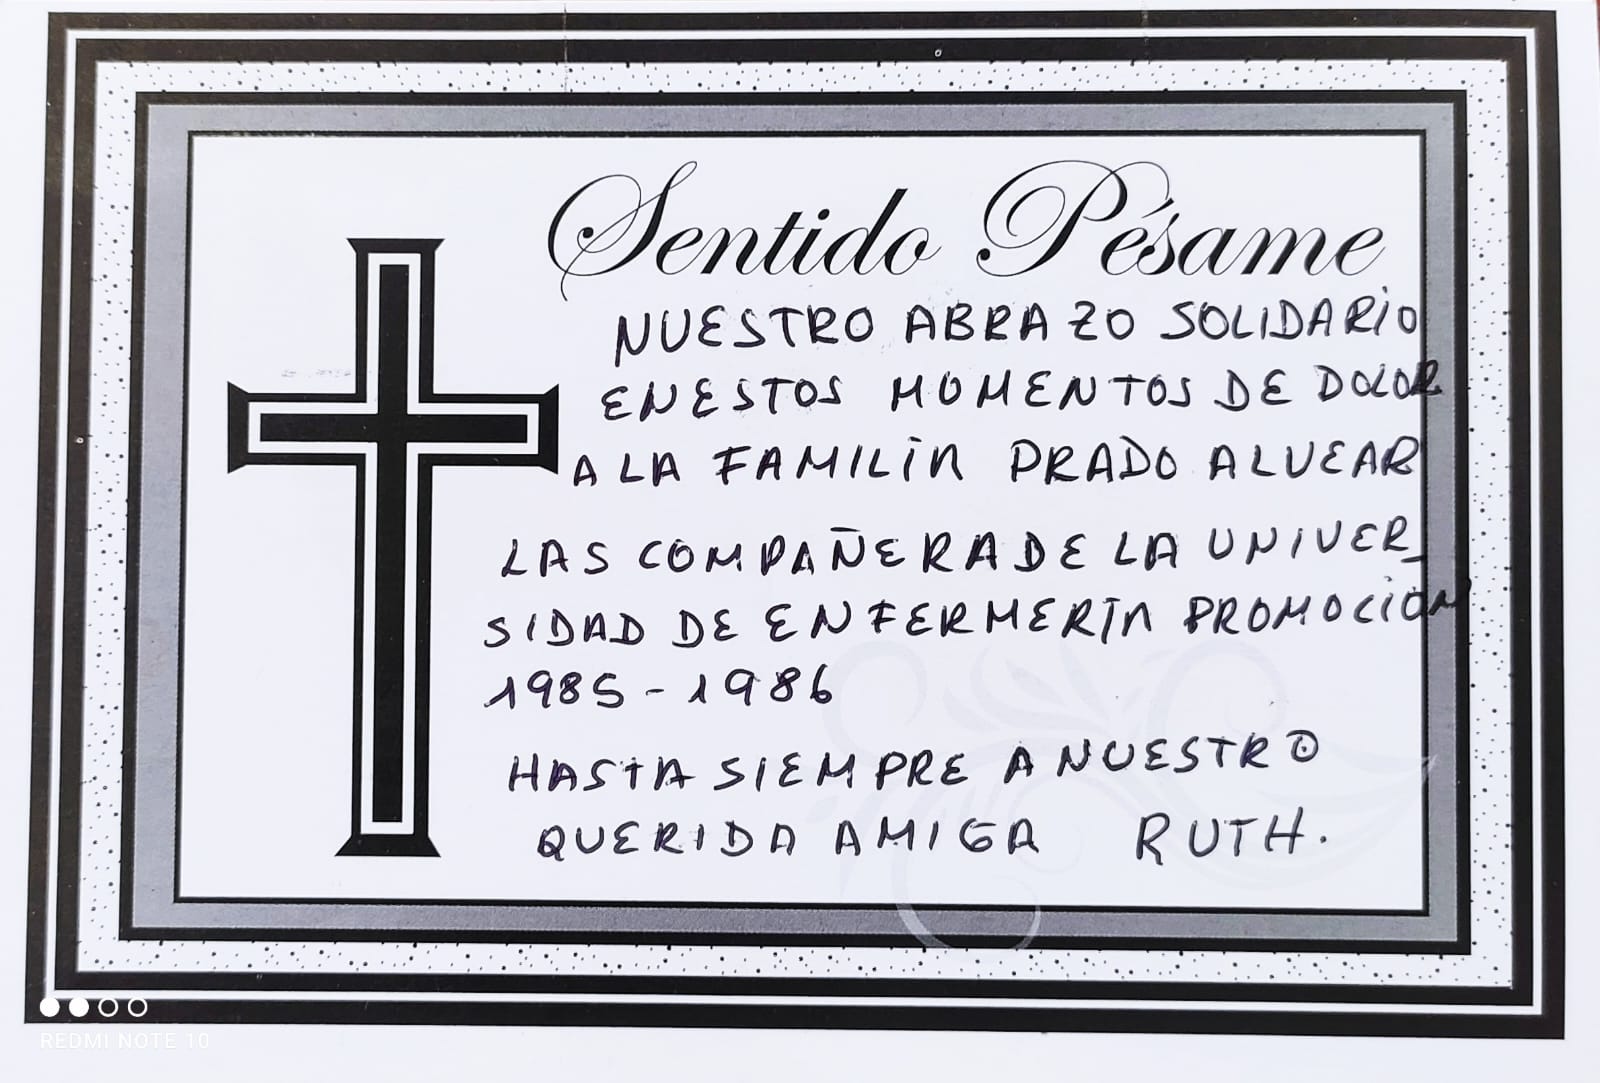 Sentido Pésame
NUESTRO ABRAZO SOLIDARIO
EN ESTOS MOMENTOS DE DOLOR
A LA FAMILIA PRADO ALVEAR
LAS COMPAÑERA DE LA UNIVER-
SIDAD DE ENFERMERÍA PROMOCION
1985-1986
HASTA SIEMPRE A NUESTRO
QUERIDA AMIGA RUTH.
REDMI NOTE 10